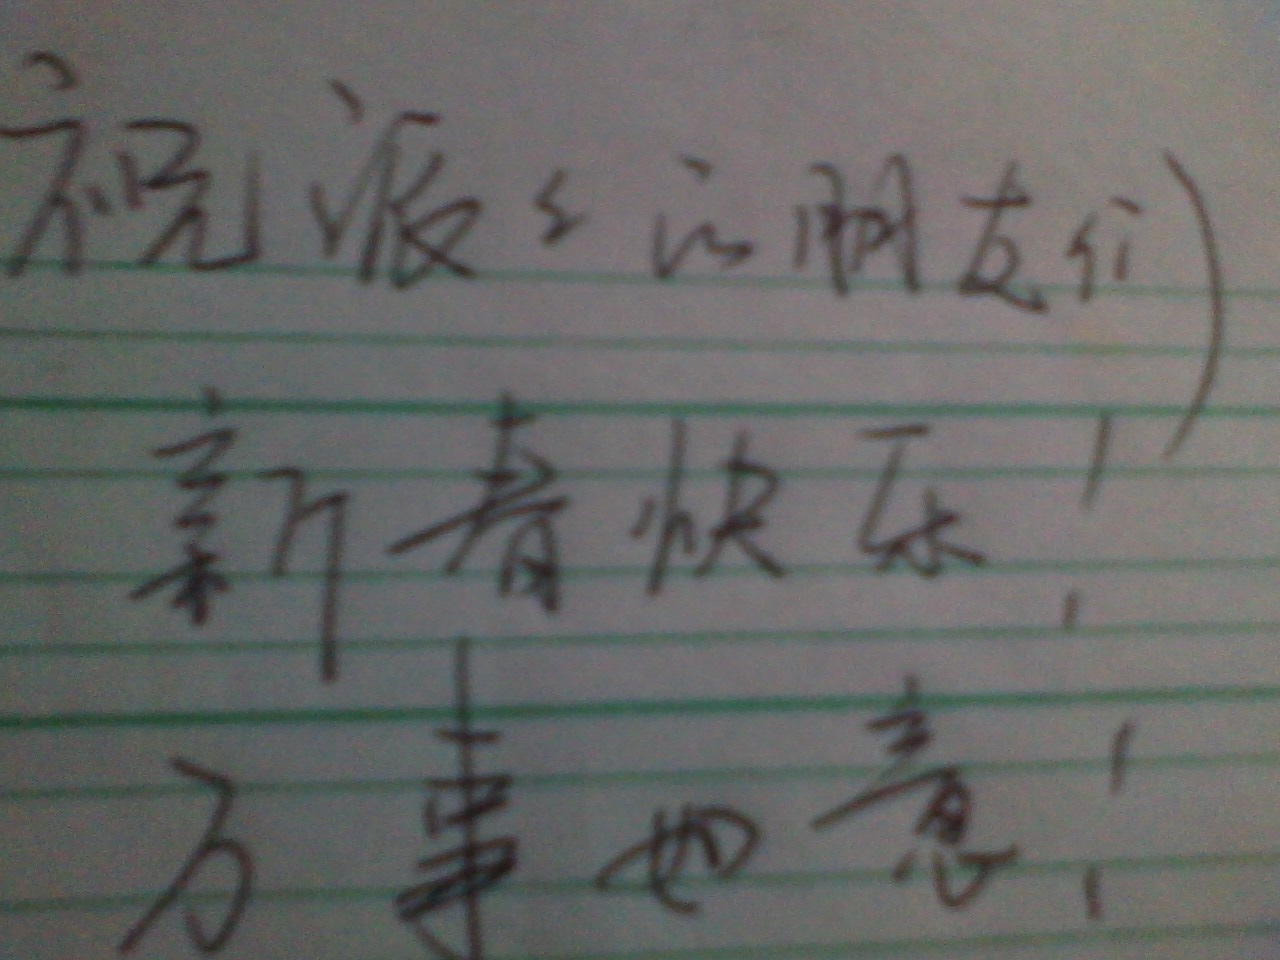 祝派派的朋友们
新春快乐!
万事如意!